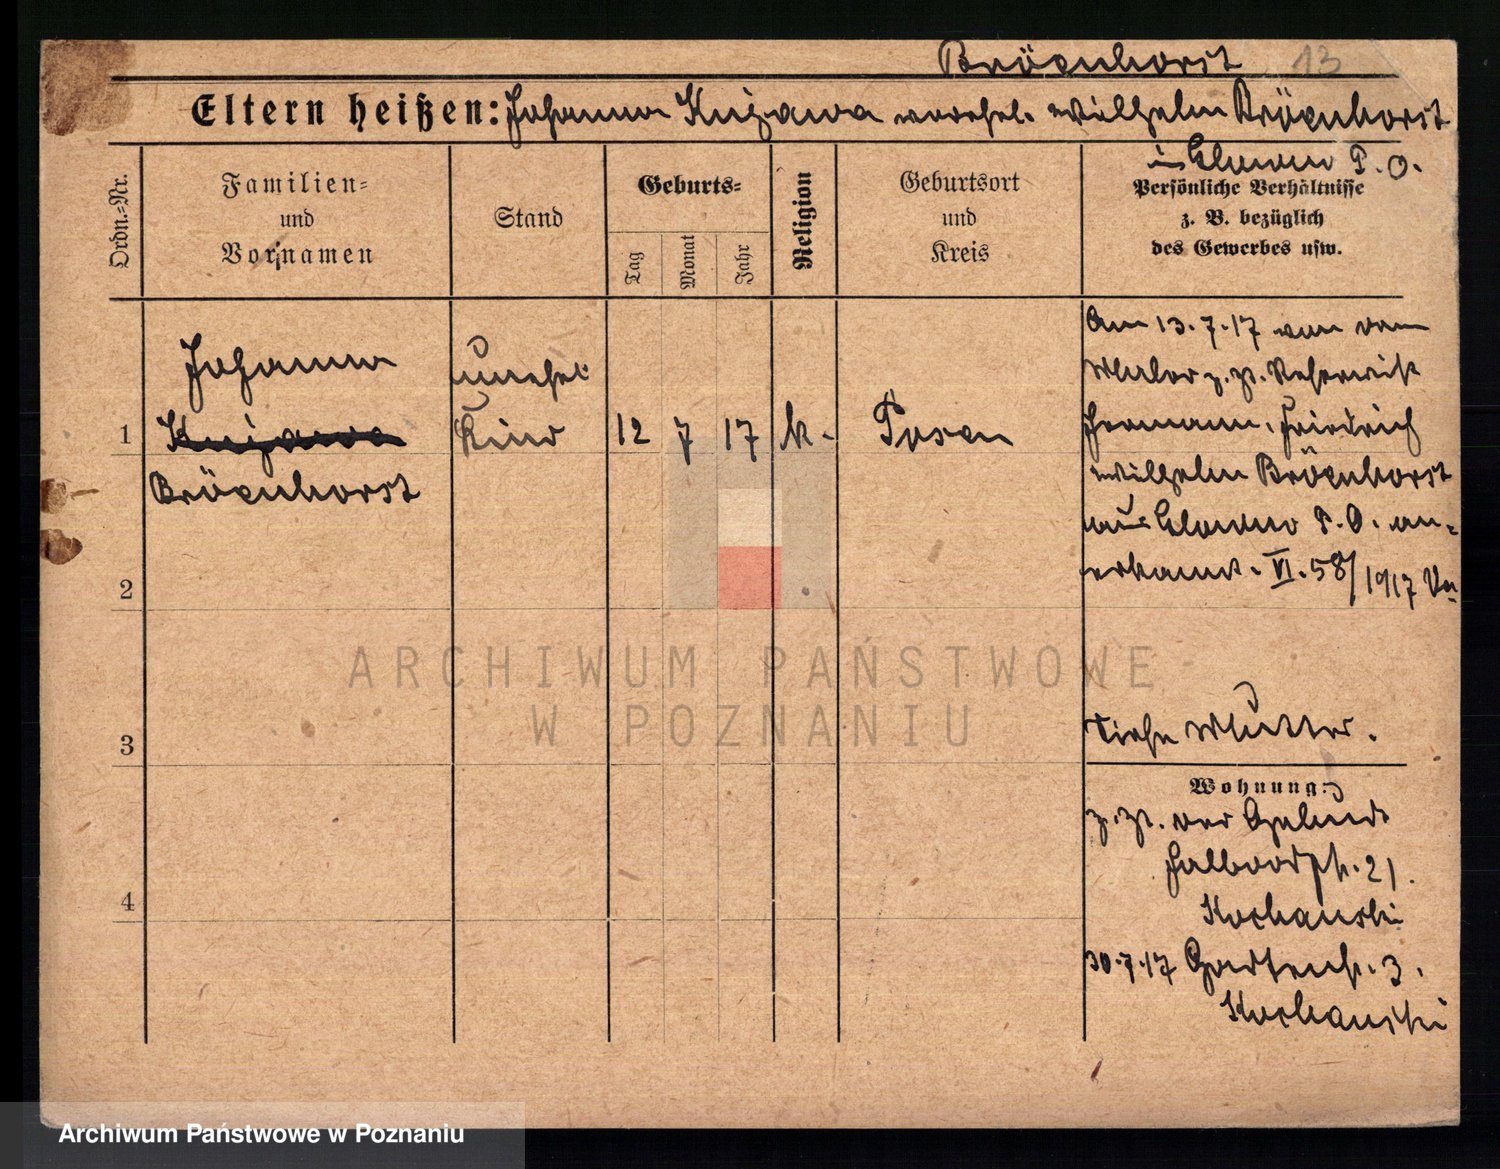 Bröenhorst 13
Eltern heißen: Johanna Kujawa verehel. Wilhelm Bröenhorst
in P. O.
Ordn.=Nr.
Familien=
und
Vornamen
Stand
Geburts=
Tag
Monat
Jahr
Religion
Geburtsort
und
Kreis
Persönliche Verhältnisse
z. B. bezüglich
des Gewerbes usw.
1
Johanna
Kujawa
Bröenhorst
unehel.
Kind
12 7 17 k. Posen
Am 13.7.17 von dem
Maler z. Zt. Reservist
Hermann, Friedrich
Wilhelm Bröenhorst
aus P. O. an=
erkannt. VI. 58/1917
2
3
Siehe Mutter.
Wohnung:
z. Zt. der
21.
Kochanski
4
30.7.17 Gartenstr. 3.
Kochanski
ARCHIWUM PAŃSTWOWE
W POZNANIU
Archiwum Państwowe w Poznaniu